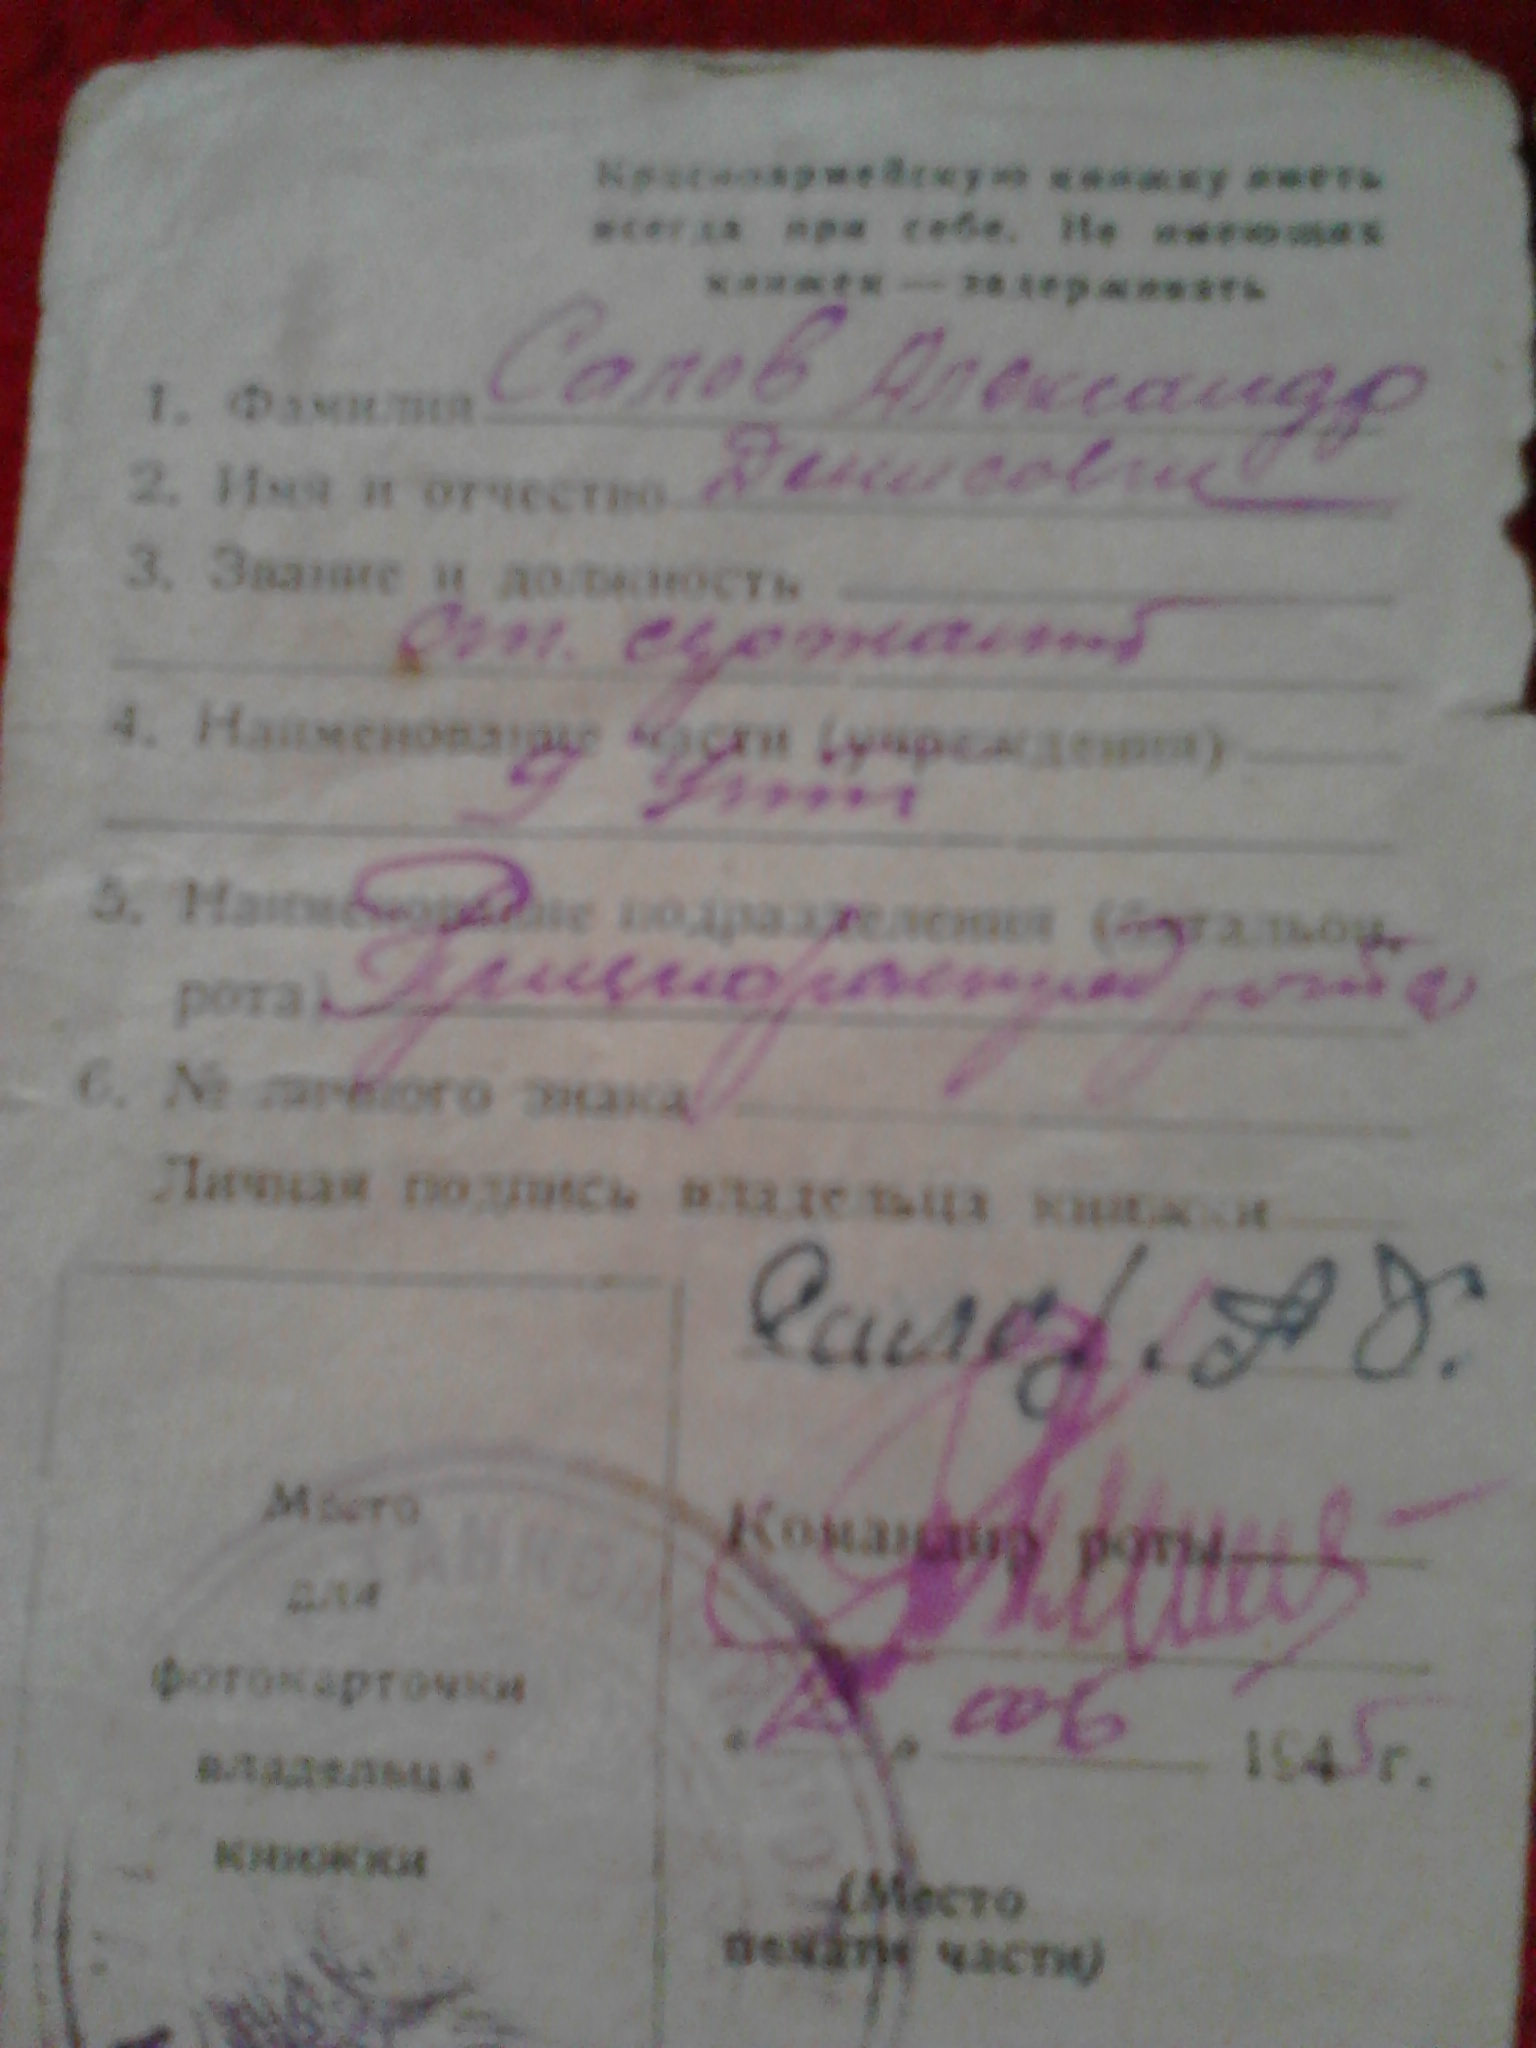 Красноармейскую книжку иметь
всегда при себе. Не имеющих
книжек — задерживать
1. Фамилия Салов Александр
2. Имя и отчество Денисович
3. Звание и должность
ст. сержант
4. Наименование части (учреждения)
9
5. Наименование подразделения (батальон,
рота) рота
6. № личного знака
Личная подпись владельца книжки
Салов. А Д.
Место
для
фотокарточки
владельца
книжки
Командир роты
" " 1945 г.
(Место
печати части)